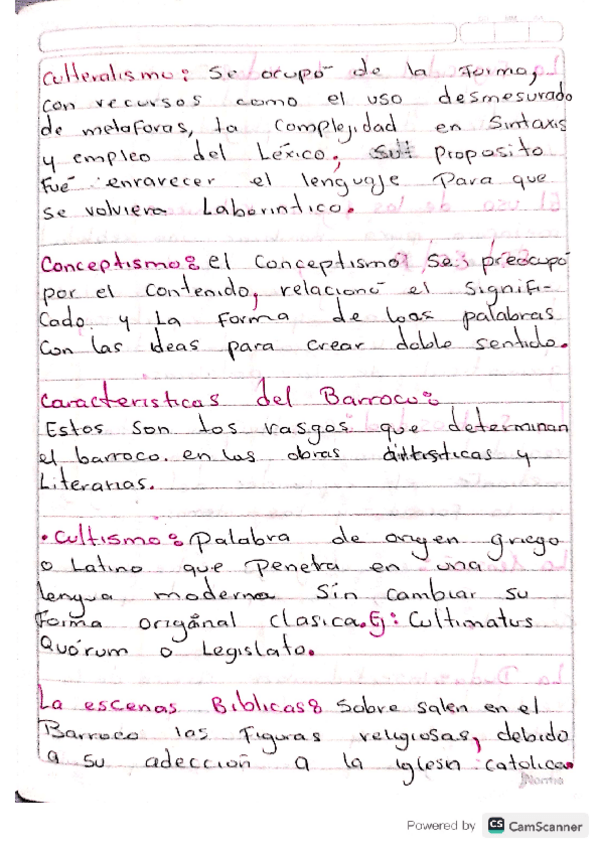 Culteralismo: Se ocupó de la forma,
con recursos como el uso desmesurado
de metaforas, la complejidad en Sintaxis
y empleo del Léxico, su proposito
Fué enravecer el lenguaje Para que
se volviera Laborintico.
Conceptismo: el Conceptismo se preocupó
por el Contenido, relacionó el Signifi-
Cado y La Forma de las palabras
Con las ideas para crear doble sentido.
Caracteristicas del Barroco:
Estos son los rasgos que determinan
el barroco en las obras artisticas y
Literarias.
• Cultismo: Palabra de origen griego
o Latino que Penetra en una
lengua moderna Sin cambiar su
Forma origanal clasica. Ej: Cultimatus
Quórum o Legislato.
La escenas Biblicas: Sobre salen en el
Barroco las Figuras religiosas, debido
a su adección a la iglesia catolica.
Norma
Powered by CS CamScanner